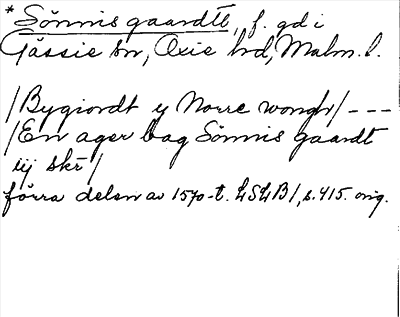 * Sönnis gaardtt, f. gd i
Gässie sn, Oxie hd, Malm. l.
/Bygiordt y Norre wongh/ ---
/En ager bag Sönnis gaardt
iij skr/
förra delen av 1570-t. LSLB1, s. 415. orig.